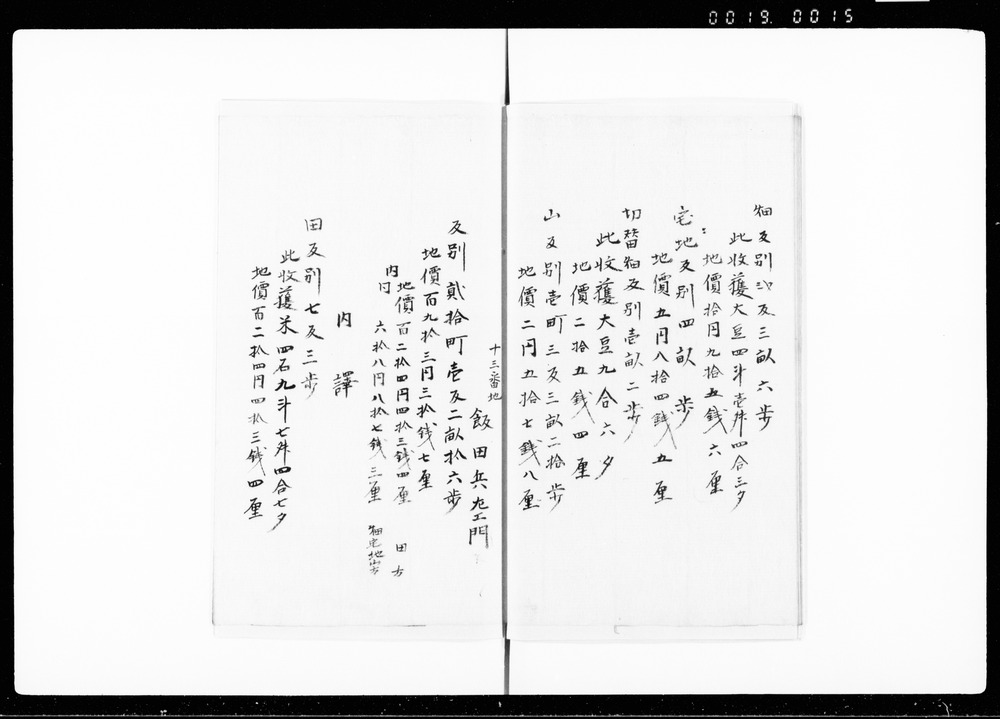 0019. 0015
畑反別弐反三畝六歩
此收獲大豆四斗壱舛四合三夕
地價拾円九拾五銭六厘
宅地反別四畝歩
地價五円八拾四銭五厘
切替畑反別壱畝二歩
此收獲大豆九合六夕
地價二拾五銭四厘
山反別壱町三反三畝二拾歩
地價二円五拾七銭八厘
十三番地
飯田兵左エ門
反別貳拾町壱反二畝拾六歩
地價百九拾三円三拾銭七厘
内 地價百二拾四円四拾三銭四厘 田方
内 六拾八円八拾七銭三厘 畑宅地山方
内譯
田反別七反三歩
此收獲米四石九斗七舛四合七夕
地價百二拾四円四拾三銭四厘